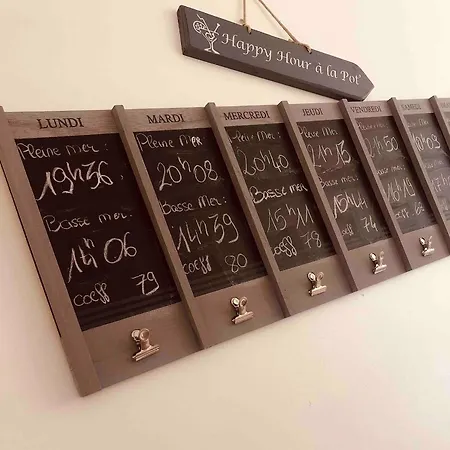 Happy Hour à la Pot'
LUNDI
Pleine mer :
19h36
Basse mer :
14h06
coeff 79
MARDI
Pleine mer
20h08
Basse mer :
14h39
coeff 80
MERCREDI
Pleine mer :
20h40
Basse mer :
15h11
coeff 78
JEUDI
Pleine mer :
21h13
Basse mer
15h44
coeff 74
VENDREDI
Pleine mer
21h50
Basse mer
16h19
coeff 68
SAMEDI
Pleine mer
Basse mer